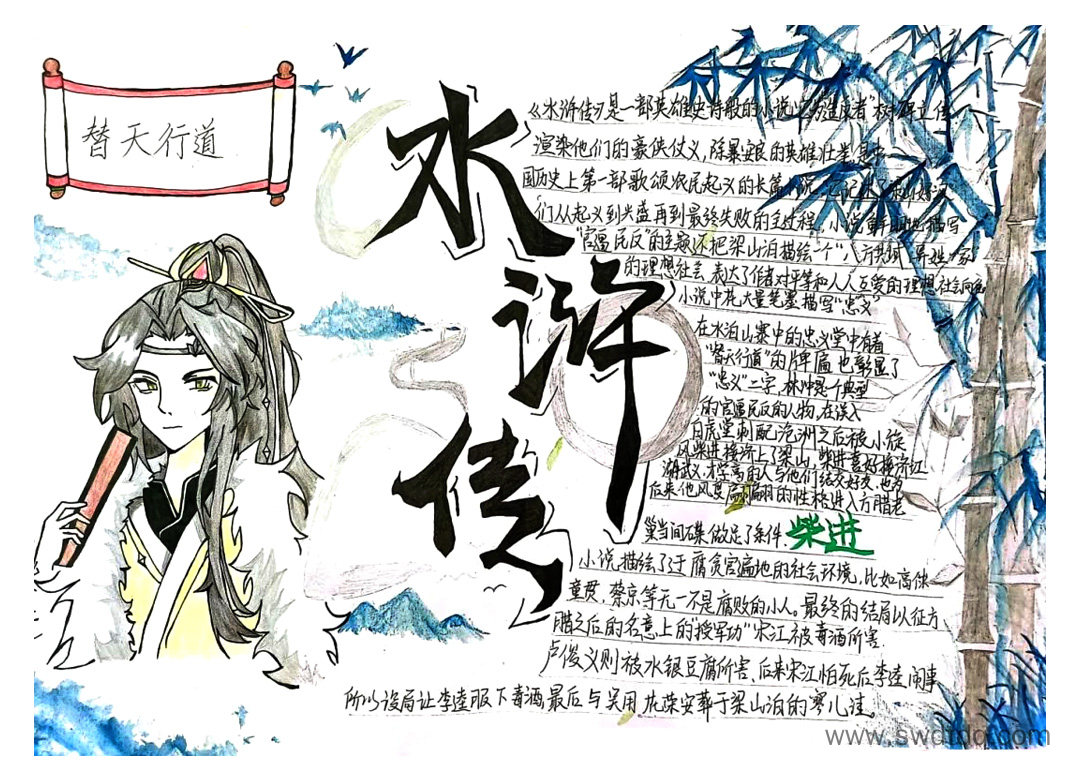 替天行道
水浒传
《水浒传》是一部英雄史诗般的小说它为造反者"树碑立传
渲染他们的豪侠仗义,除暴安良的英雄壮举,是中
国历史上第一部歌颂农民起义的长篇小说,它记述了梁山好汉
们从起义到兴盛再到最终失败的全过程,小说 描写
"官逼民反"的主题还把梁山泊描绘一个"八方共域,异姓一家"
的理想社会,表达了作者对平等和人人互爱的理想社会向
小说中花大量笔墨描写"忠义"
在水泊山寨中的忠义堂中有着
"替天行道"的牌匾也彰显了
"忠义"二字,林冲是一个典型
的官逼民反的人物,在误入
白虎堂刺配沧洲之后被小旋
风柴进接济上了梁山,柴进喜好接济江
湖武义才学高的人与他们结交好友,也为
后来他风度 的性格进入方腊老
巢当间碟做足了条件. 柴进
小说描绘了于腐贪官遍地的社会环境,比如高俅
童贯,蔡京等无一不是腐败的小人。最终的结局以征方
腊之后的名意上的"授军功"宋江被毒酒所害
卢俊义则被水银豆腐所害,后来宋江怕死后李逵闹事
所以设局让李逵服下毒酒,最后与吴用,花荣安葬于梁山泊的寥儿洼。
www.swdtdq.com